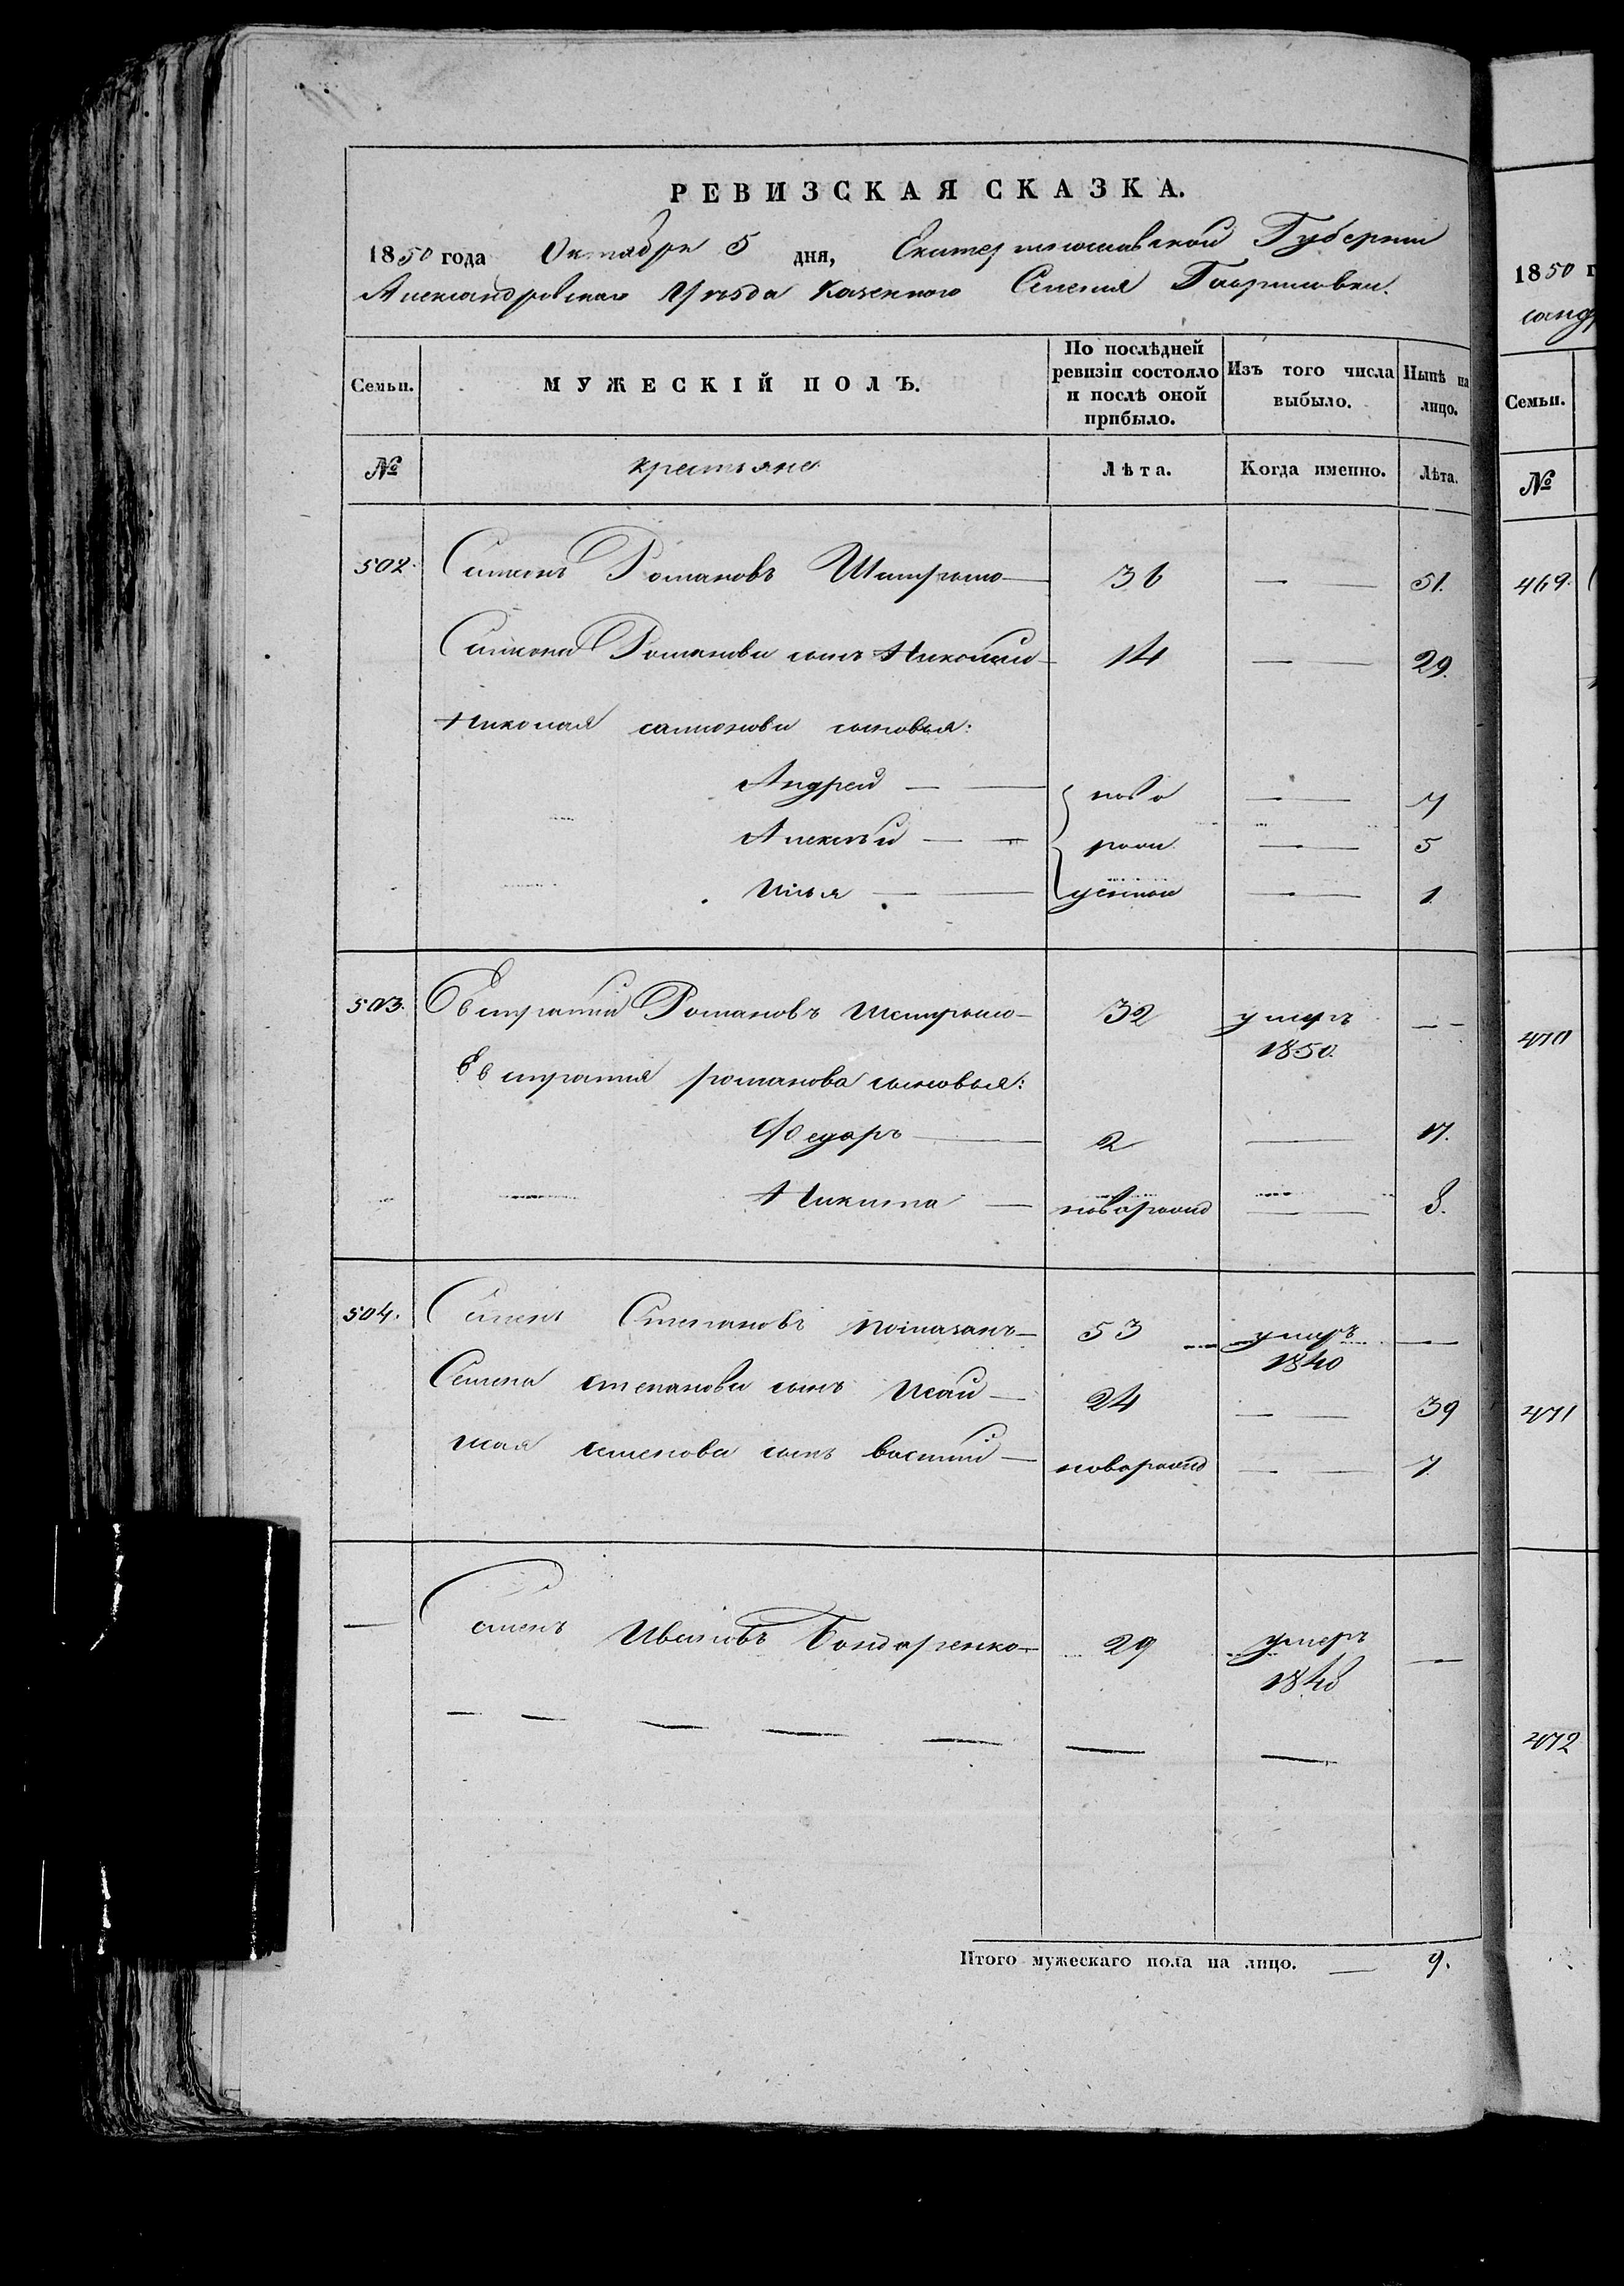 РЕВИЗСКАЯ СКАЗКА.
1850 года Октября 5 дня, Екатеринославской Губернии
Александровскаго Уѣзда Казенного Селения Гавриловки.
Семьи. МУЖЕСКІЙ ПОЛЪ. По послѣдней ревизіи состояло и послѣ оной прибыло. Изъ того числа выбыло. Нынѣ на лицо.
№ крестьяне Лѣта. Когда именно. Лѣта.
502. Романовъ 36 — 51.
Романова сынъ Николай 14 — 29.
Николая сыновья:
Андрей — ново — 7
Алексѣй — рож — 5
Илья — денные — 1
503. Евстратий Романовъ 32 умеръ 1850. —
Евстратия романова сыновья:
Федоръ — 2 — 17.
Никита — новорожд — 8.
504. Семенъ Степановъ 53 умеръ 1840 —
Семена степанова сынъ Исай — 24 — 39
Исая семенова сынъ василий — новорожд — 7
— Семенъ Ивановъ Бондаренко — 29 умеръ 1848 —
Итого мужескаго пола на лицо. — 9.
1850 г
Семьи.
№
469.
470
471
472